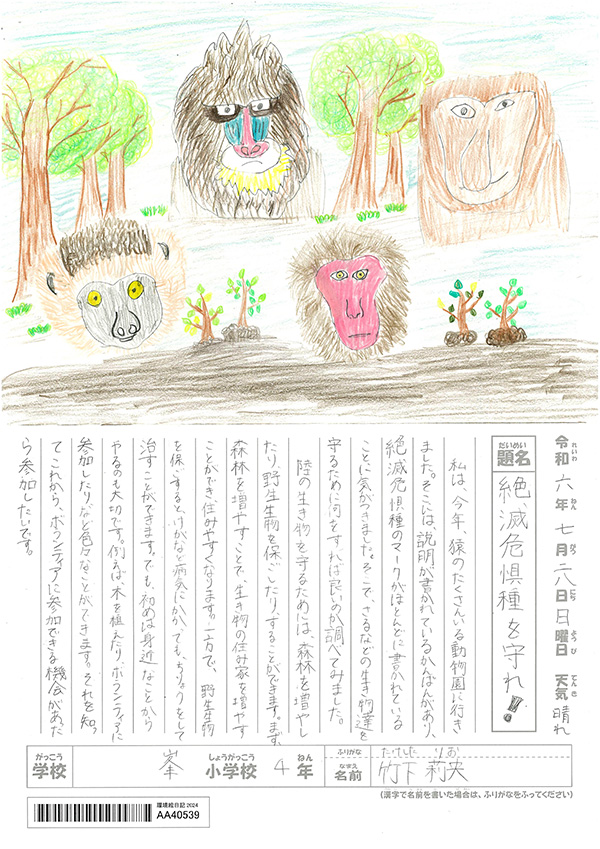 令和六年七月二八日日曜日 天気 晴れ
れいわ ねん がつ にち ようび てんき
だいめい
題名 絶滅危惧種を守れ!!
私は、今年、猿のたくさんいる動物園に行き
ました。そこには、説明が書かれているかんばんがあり、
絶滅危惧種のマークがほとんどに書かれている
ことに気がつきました。そこで、さるなどの生き物達を
守るために何をすれば良いのか調べてみました。
陸の生き物を守るためには、森林を増やし
たり、野生生物を保ごしたりすることができます。まず、
森林を増やすことで、生き物の住み家を増やす
ことができ、住みやすくなります。一方で、野生生物
を保ごするとけがなど病気にかかっても、ちりょうをして
治すことができます。でも、初めは身近なことから
やるのも大切です。例えば木を植えたり、ボランティアに
参加したりなど色々なことができます。それを知っ
てこれから、ボランティアに参加できる機会があった
ら参加したいです。
がっこう
学校 峯 しょうがっこう
小学校 4 ねん
年 ふりがな たけした りお
なまえ
名前 竹下 莉央
(漢字で名前を書いた場合は、ふりがなをふってください)
環境絵日記 2024
AA40539